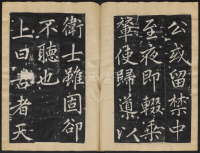 公或留禁中
至夜即輟乘
輦使歸導以
衛士雖固卻
不聽也
上曰古者天